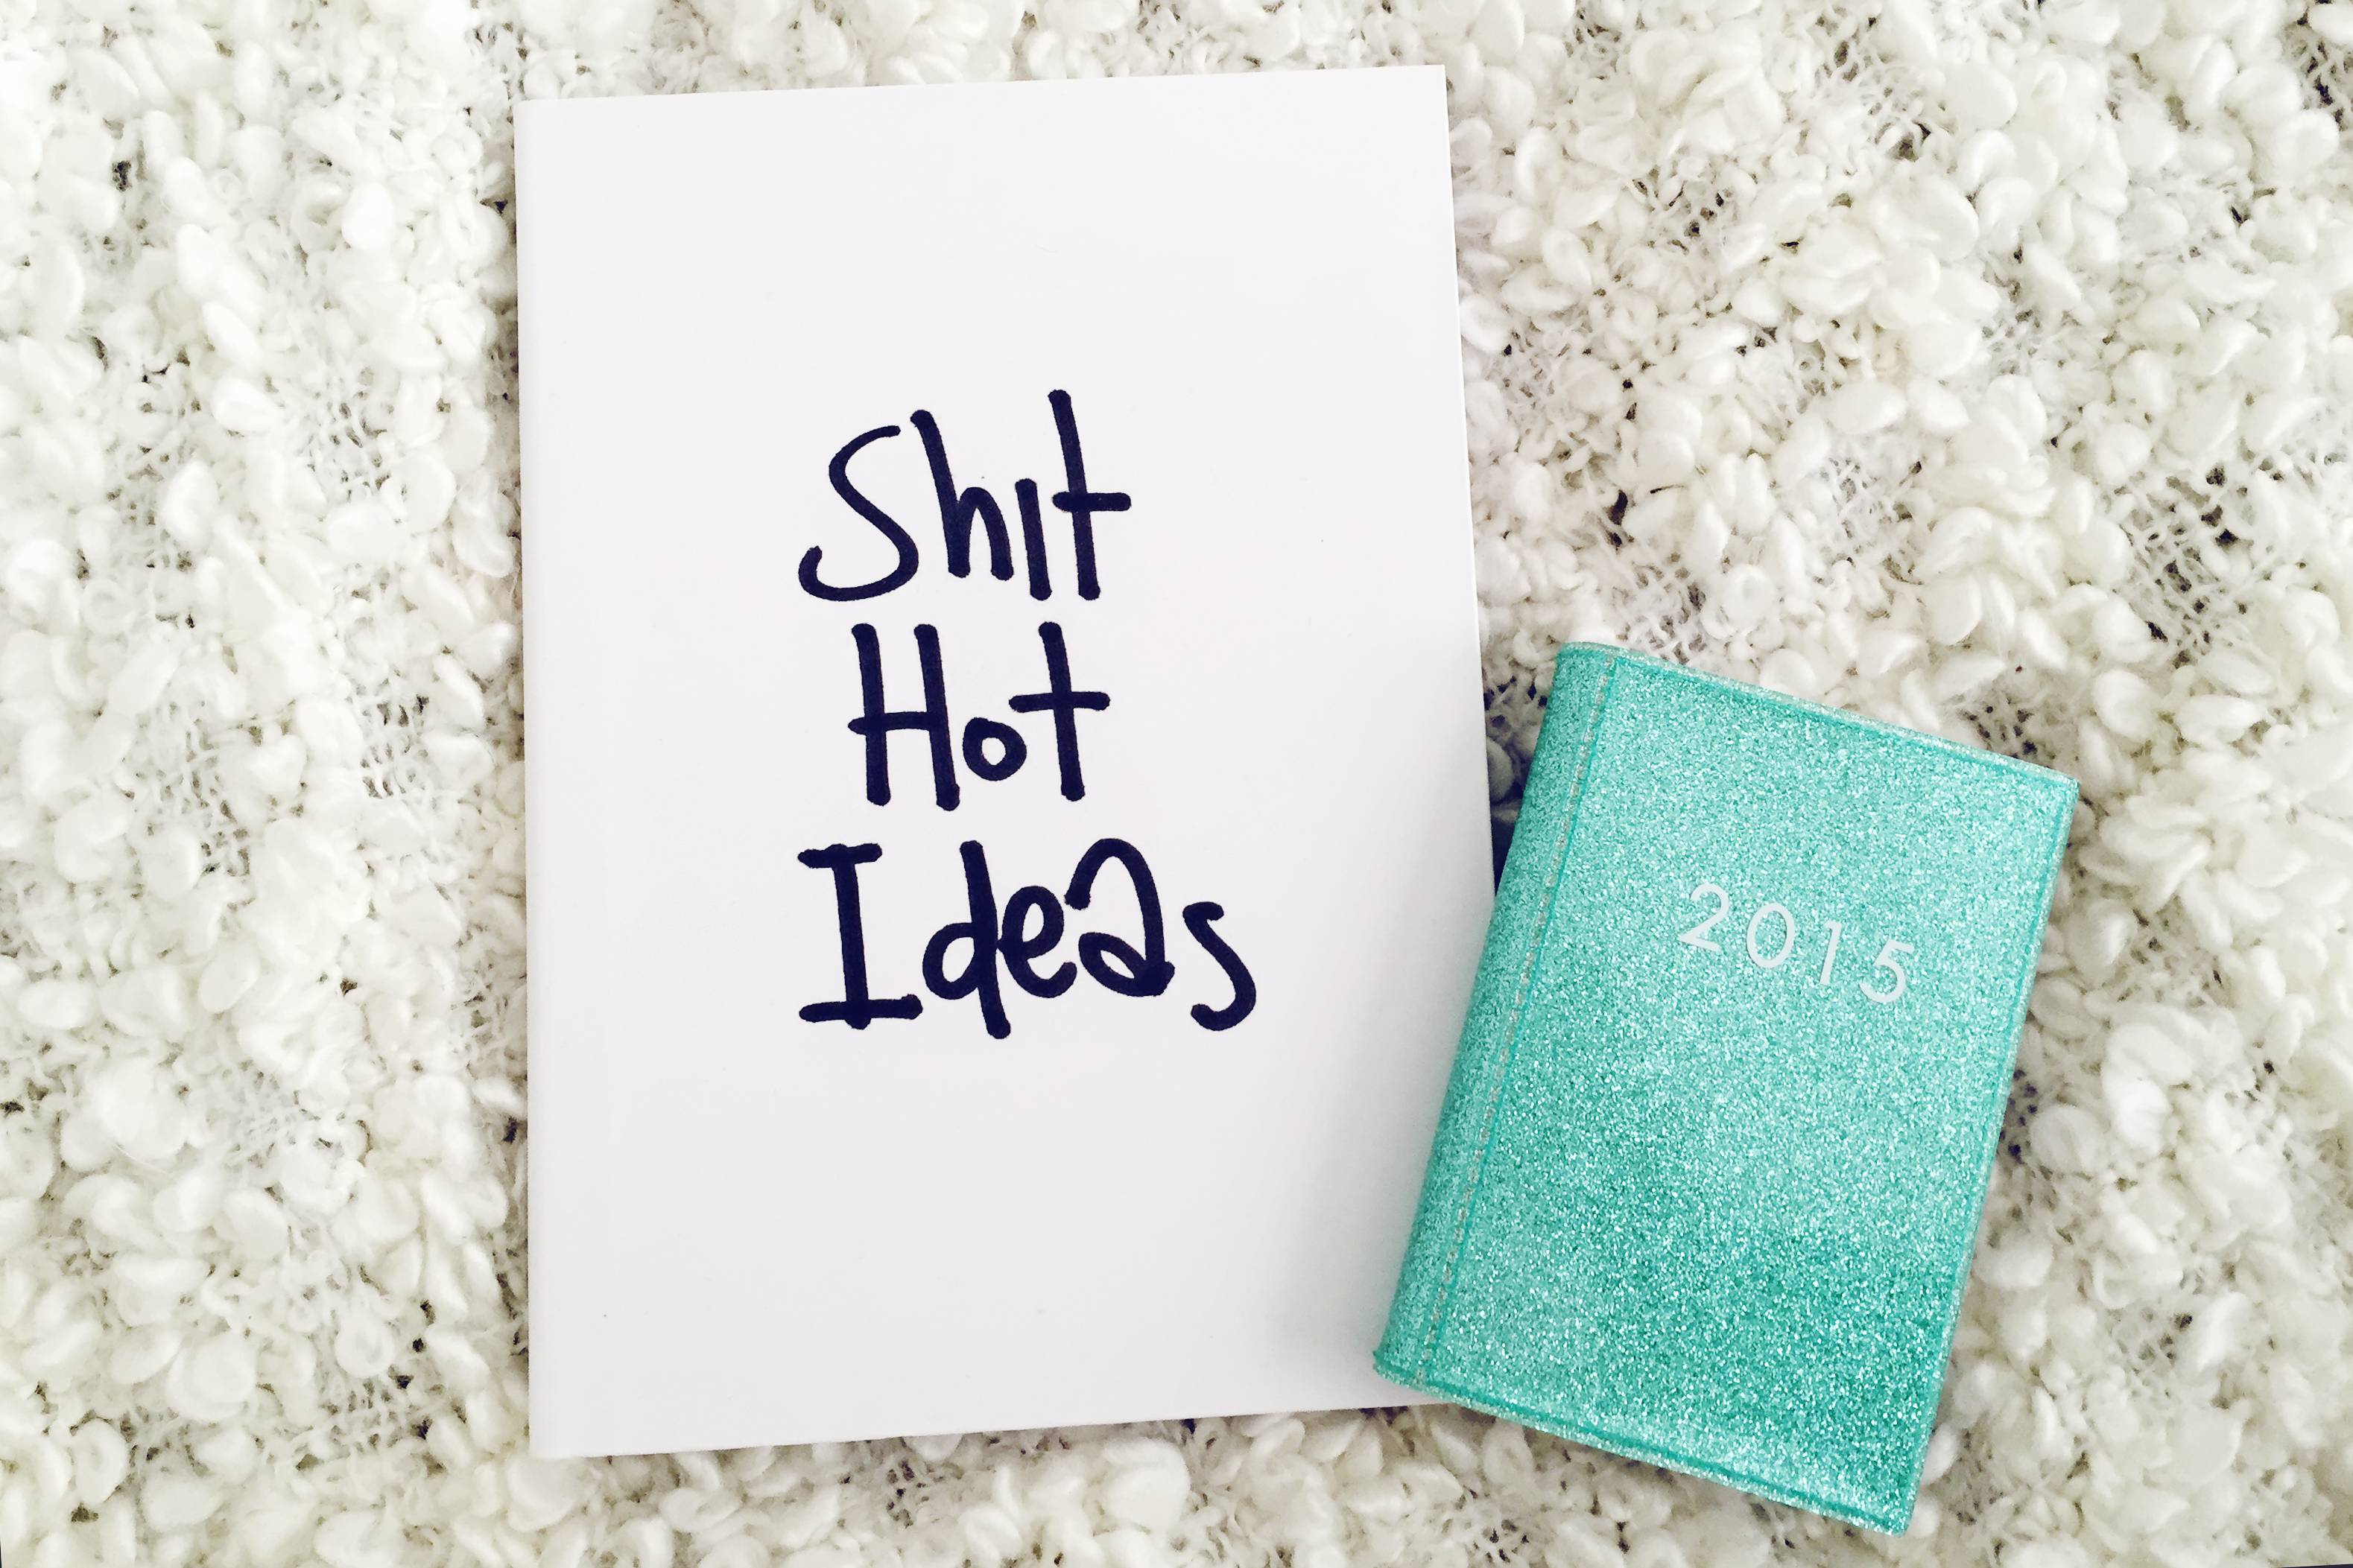 Shit
Hot
Ideas
2015